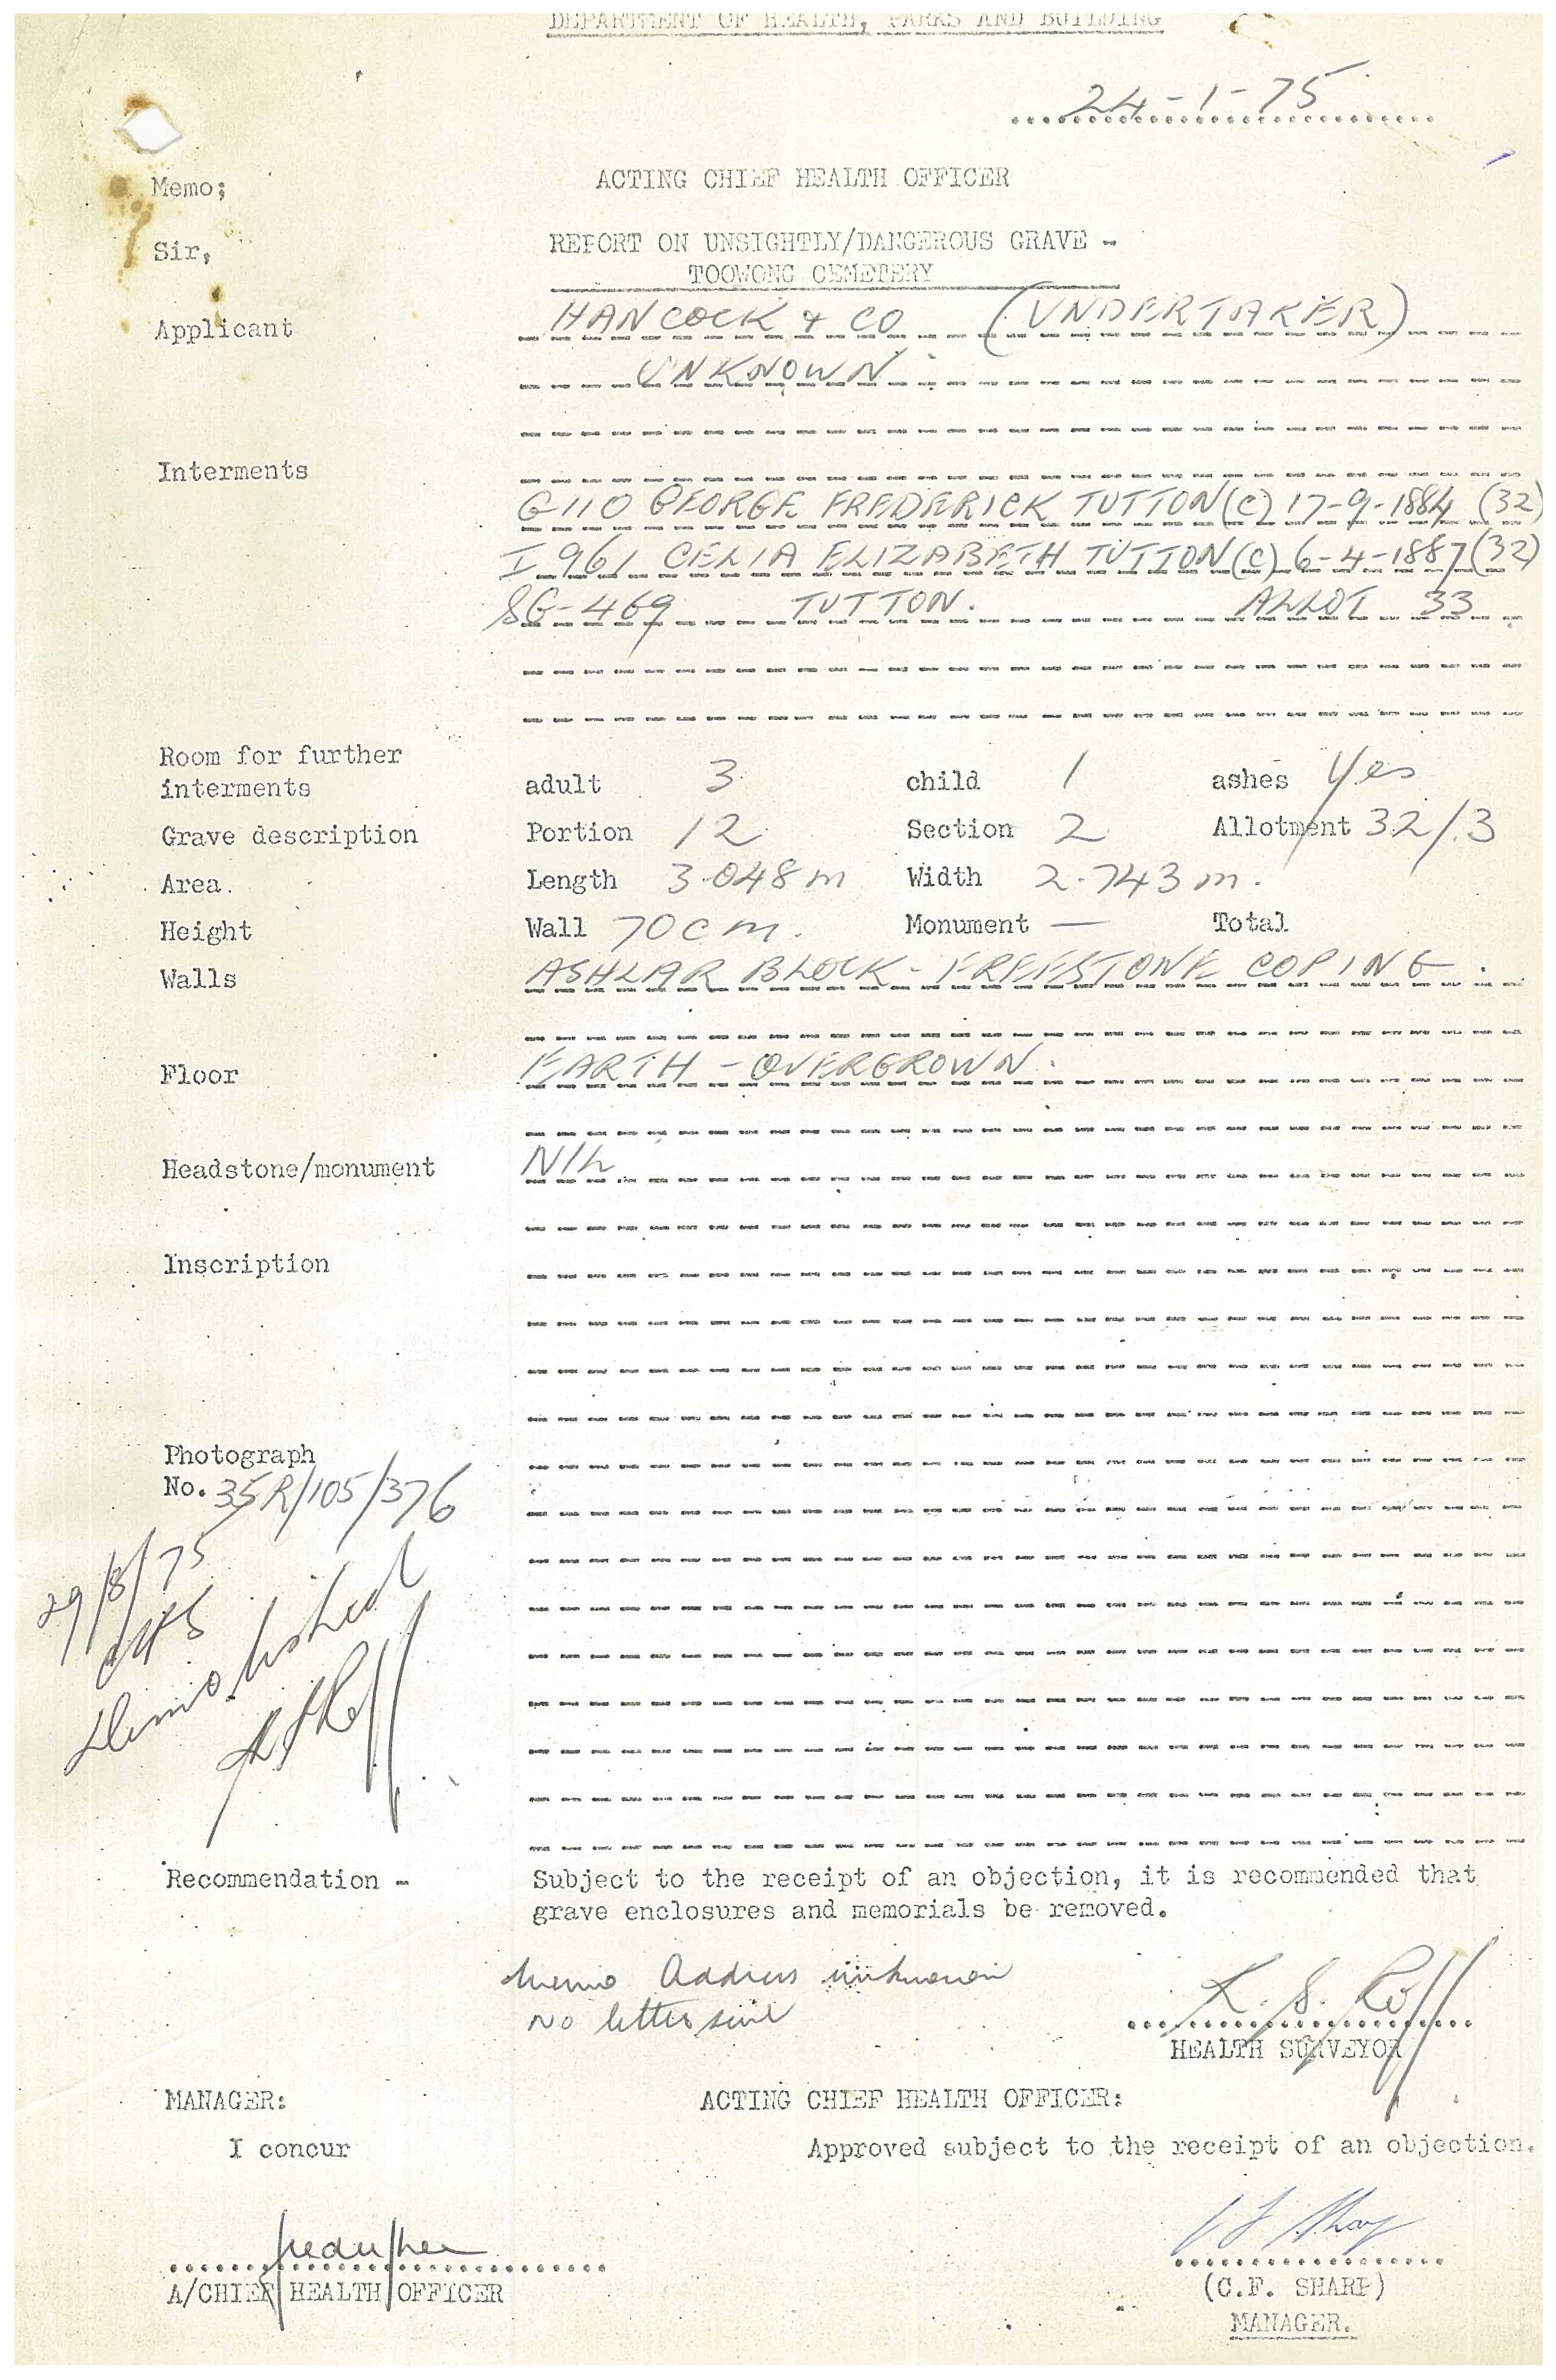 DEPARTMENT OF HEALTH, PARKS AND BUILDING
24-1-75
Memo; ACTING CHIEF HEALTH OFFICER
Sir, REPORT ON UNSIGHTLY/DANGEROUS GRAVE -
TOOWONG CEMETERY
Applicant HANCOCK & CO (UNDERTAKER)
UNKNOWN
Interments
G110 GEORGE FREDERICK TUTTON (C) 17-9-1884 (32)
I 961 CELIA ELIZABETH TUTTON (C) 6-4-1887 (32)
SG-469 TUTTON. ALLOT 33
Room for further
interments adult 3 child 1 ashes Yes
Grave description Portion 12 Section 2 Allotment 32/3
Area. Length 3.048m Width 2.743m.
Height Wall 70cm. Monument — Total
Walls ASHLAR BLOCK - FREESTONE COPING.
Floor EARTH - OVERGROWN.
Headstone/monument NIL
Inscription
Photograph
No. 35R/105/376
29/8/75
Demolished
Recommendation - Subject to the receipt of an objection, it is recommended that
grave enclosures and memorials be removed.
Memo Address unknown
No letter sent
K. S. Roff
HEALTH SURVEYOR
MANAGER: ACTING CHIEF HEALTH OFFICER:
I concur Approved subject to the receipt of an objection.
A/CHIEF HEALTH OFFICER (C.F. SHARP)
MANAGER.